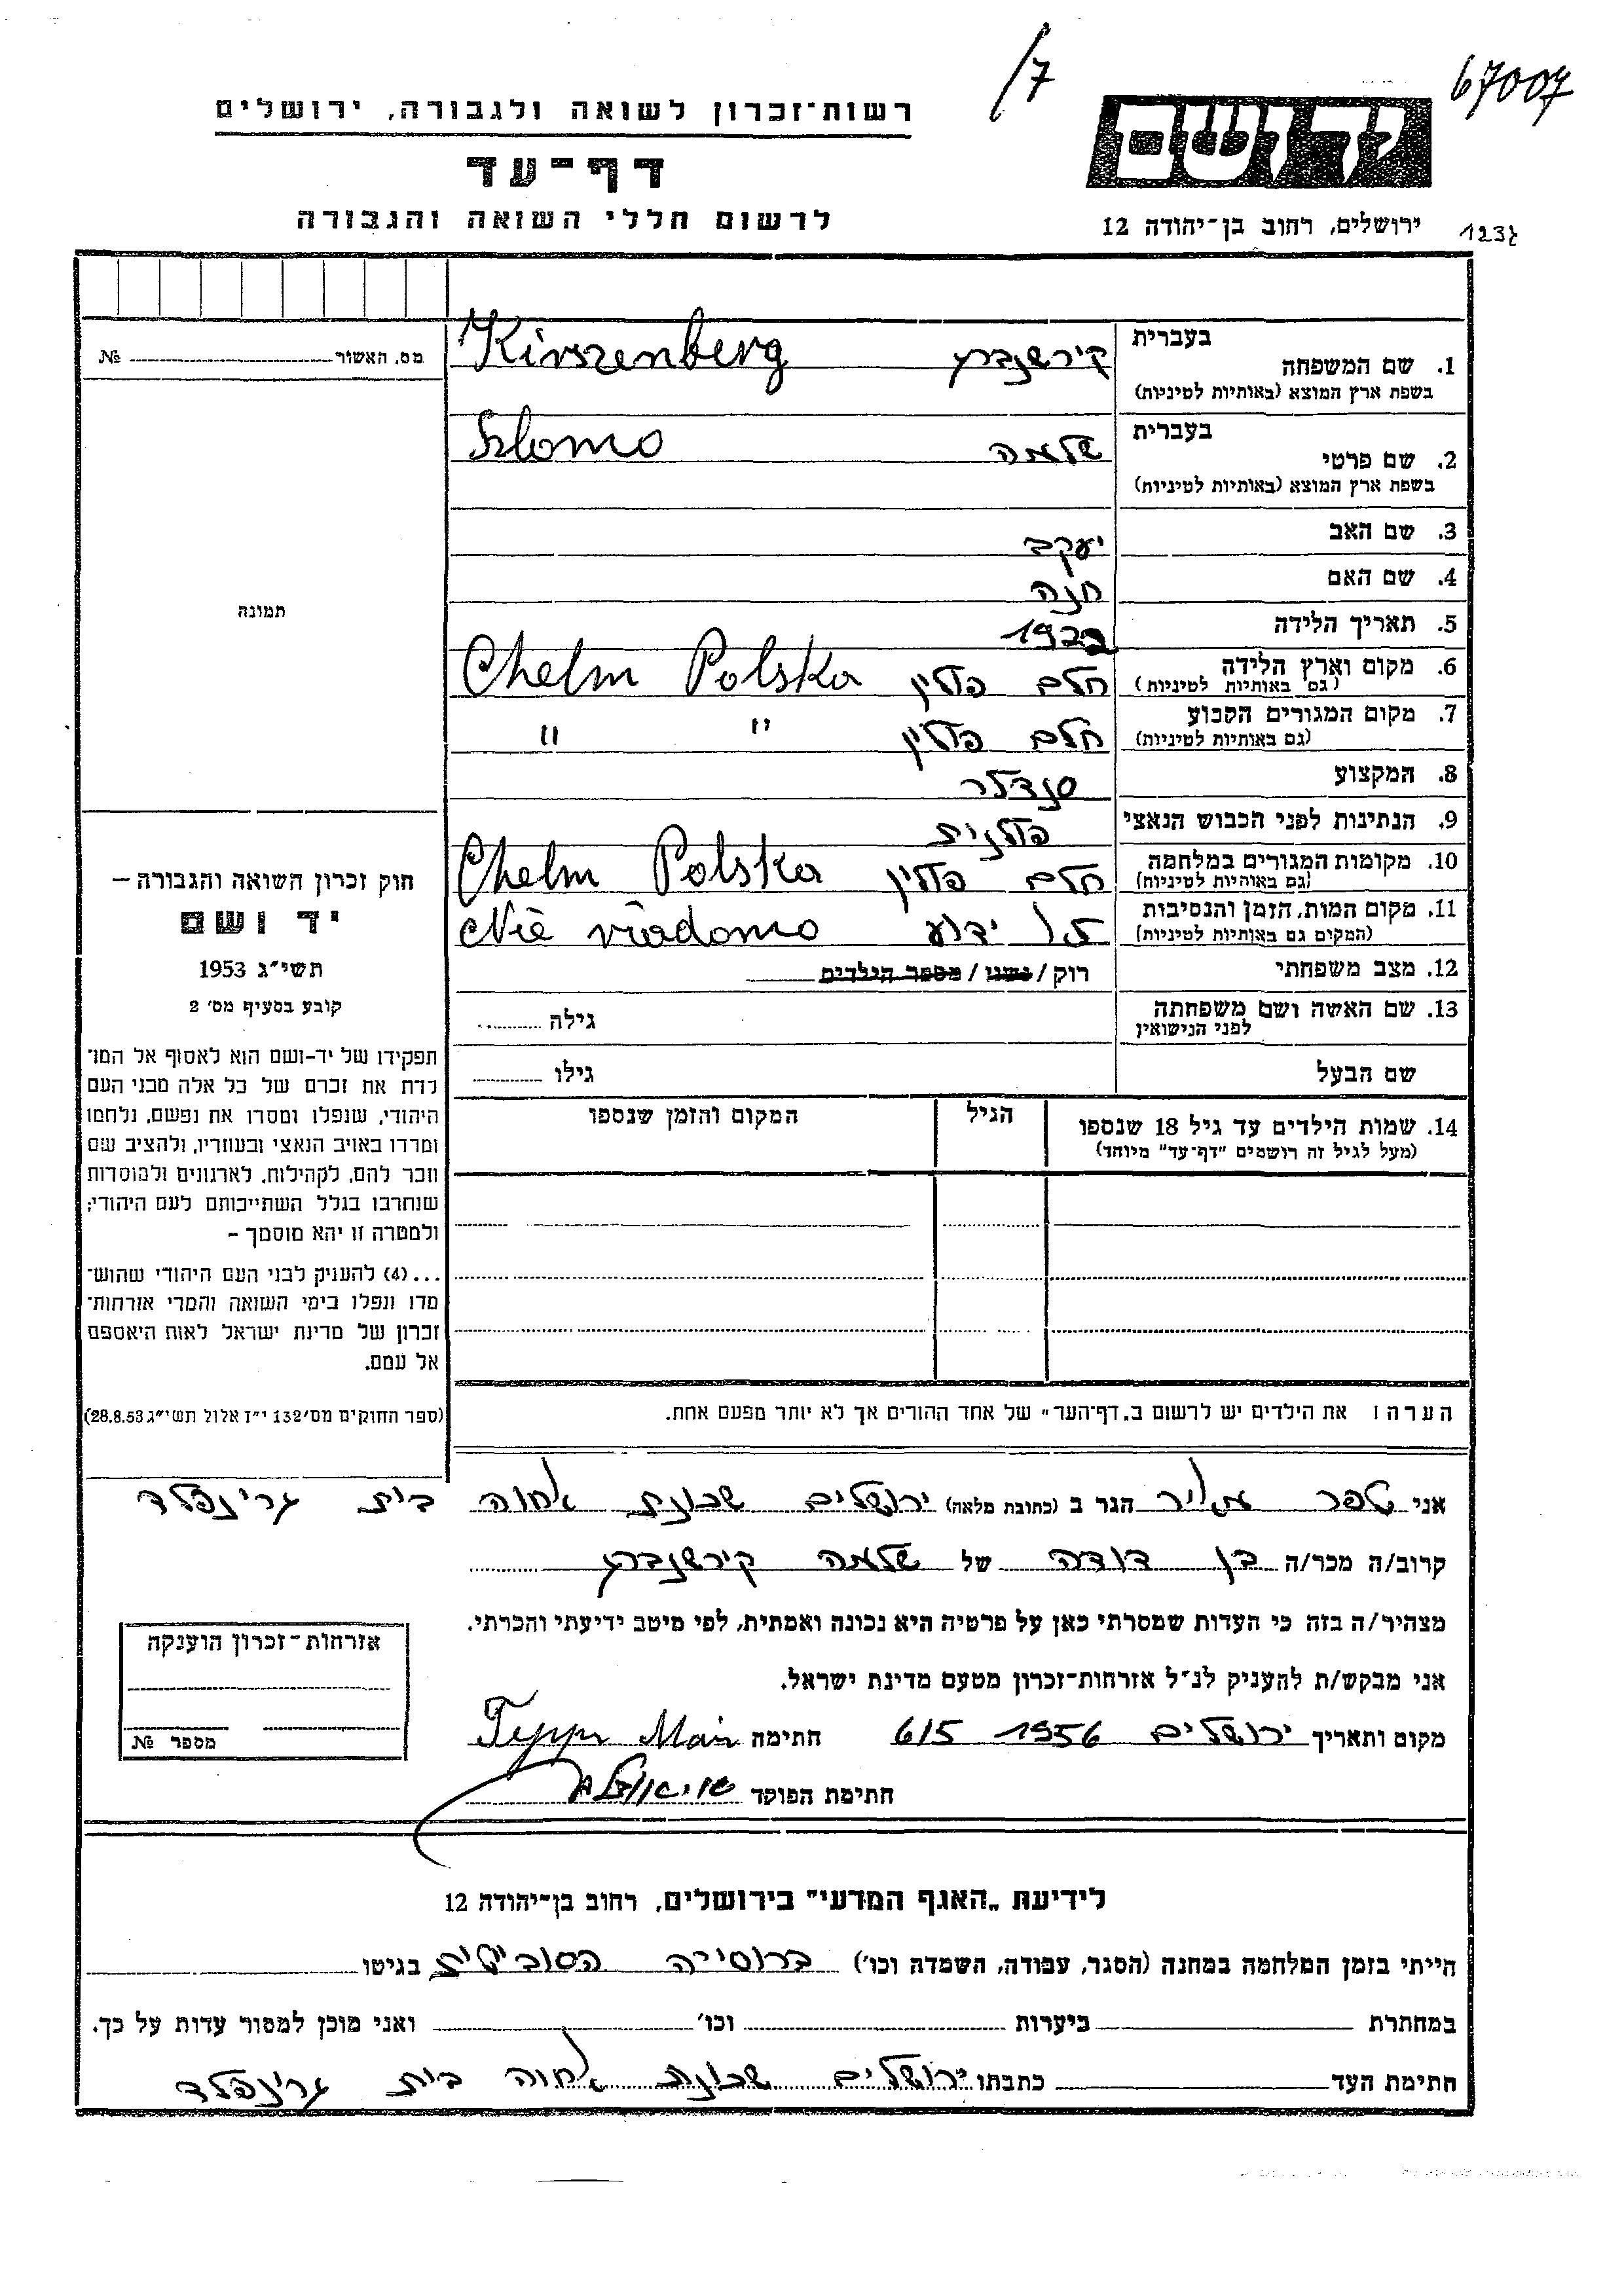 /7
67007
רשות־זכרון לשואה ולגבורה, ירושלים
יד ושם
דף־עד
לרשום חללי השואה והגבורה
ירושלים, רחוב בן־יהודה 12
123
מס. האשור № 
1. שם המשפחה בעברית קירשנברג Kirszenberg
בשפת ארץ המוצא (באותיות לטיניות)
2. שם פרטי בעברית שלמה Szlomo
בשפת ארץ המוצא (באותיות לטיניות)
3. שם האב יעקב
4. שם האם חנה
תמונה
5. תאריך הלידה 1922
6. מקום וארץ הלידה חלם פולין Chelm Polska
(גם באותיות לטיניות)
7. מקום המגורים הקבוע חלם פולין " "
(גם באותיות לטיניות)
8. המקצוע סנדלר
9. הנתינות לפני הכבוש הנאצי פולנית
10. מקומות המגורים במלחמה חלם פולין Chelm Polska
(גם באותיות לטיניות)
11. מקום המות, הזמן והנסיבות לא ידוע Nie viadomo
(המקום גם באותיות לטיניות)
12. מצב משפחתי רוק / נשוי / מספר הילדים
13. שם האשה ושם משפחתה גילה
לפני הנישואין
שם הבעל גילו
14. שמות הילדים עד גיל 18 שנספו הגיל המקום והזמן שנספו
(מעל לגיל זה רושמים "דף־עד" מיוחד)
חוק זכרון השואה והגבורה –
יד ושם
תשי״ג 1953
קובע בסעיף מס׳ 2
תפקידו של יד־ושם הוא לאסוף אל המו־
לדת את זכרם של כל אלה מבני העם
היהודי, שנפלו ומסרו את נפשם, נלחמו
ומרדו באויב הנאצי ובעוזריו, ולהציב שם
וזכר להם, לקהילות, לארגונים ולמוסדות
שנחרבו בגלל השתייכותם לעם היהודי;
ולמטרה זו יהא מוסמך –
...(4) להעניק לבני העם היהודי שהוש־
מדו ונפלו בימי השואה והמרי אזרחות־
זכרון של מדינת ישראל לאות היאספם
אל עמם.
(ספר החוקים מס׳ 132 י״ז אלול תשי״ג 28.8.53)
הערה: את הילדים יש לרשום ב„דף־העד" של אחד ההורים אך לא יותר מפעם אחת.
אני טפר מאיר הגר ב (כתובת מלאה) ירושלים שכונת אחוה בית גרינפלד
קרוב/ה מכר/ה בן דודה של שלמה קירשנברג
מצהיר/ה בזה כי העדות שמסרתי כאן על פרטיה היא נכונה ואמתית, לפי מיטב ידיעתי והכרתי.
אני מבקש/ת להעניק לנ״ל אזרחות־זכרון מטעם מדינת ישראל.
אזרחות־זכרון הוענקה
מספר №
מקום ותאריך ירושלים 6/5 1956 חתימה
חתימת הפוקד
לידיעת „האגף המדעי" בירושלים, רחוב בן־יהודה 12
הייתי בזמן המלחמה במחנה (הסגר, עבודה, השמדה וכו׳) ברוסייה הסוביטית בגיטו
במחתרת ביערות וכו׳ ואני מוכן למסור עדות על כך.
חתימת העד כתבתו ירושלים שכונת אחוה בית גרינפלד